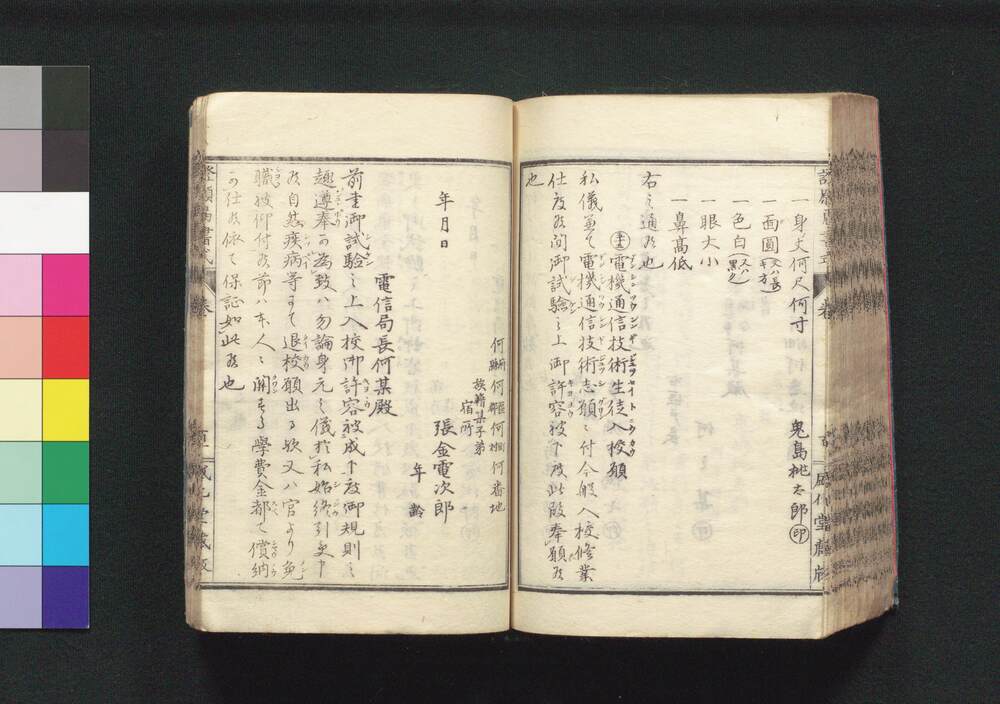 鬼島桃太郎㊞
一身丈何尺何寸
一面圓
一色白
一眼大小
一鼻高低
右之通候也
電機通信技術生徒入校願
私儀兼テ電機通信技術志願ニ付今般入校修業
仕度候間御試験之上御許容被下度此段奉願候
也
何府縣何區郡何町村何番地
族籍某子弟
宿所
張金電次郎
年齢
年月日
電信局長何某殿
前書御試験之上入校御許容被成下度御規則之
趣遵奉可為致ハ勿論身元之儀於私始終引受申
候自然疾病等ニテ退校願出候歟又ハ官ヨリ免
職被仰付候節ハ本人ニ関スル學費金都テ償納
可仕候依テ保証如此候也